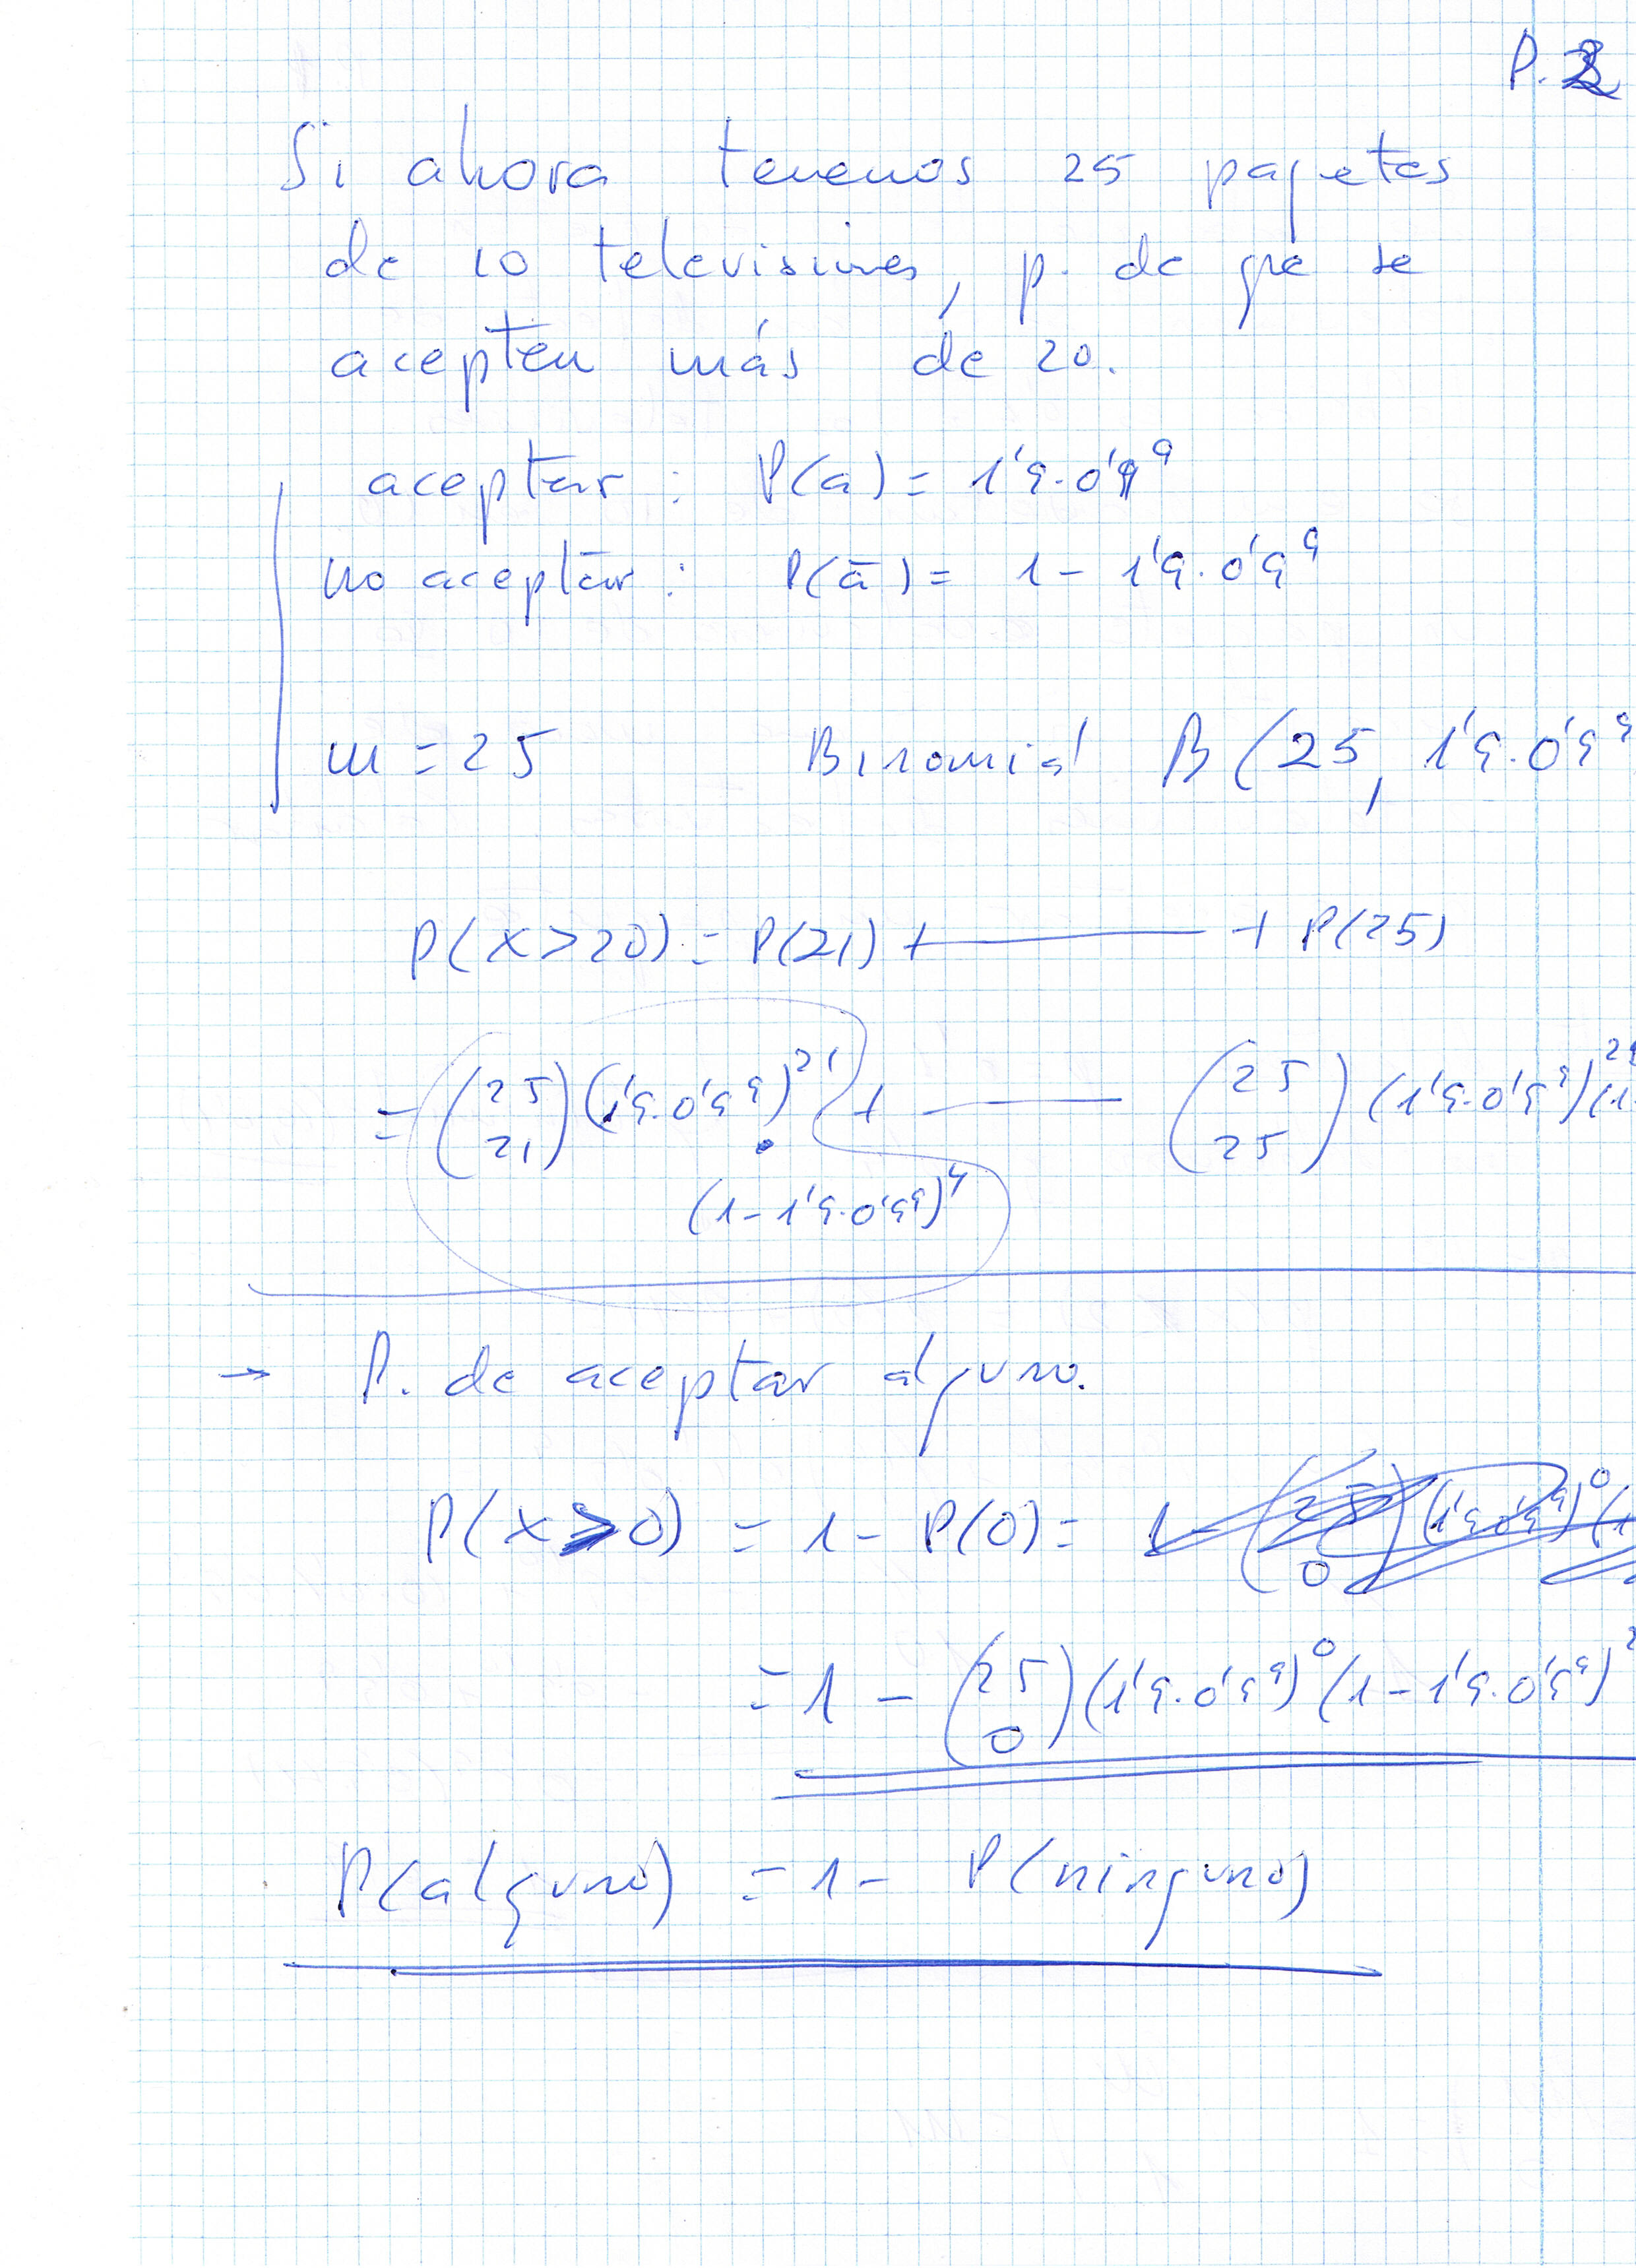 P. 2
Si ahora tenemos 25 paquetes
de 10 televisiones, p. de que se
acepten más de 20.
aceptar : P(a) = 1'9·0'9⁹
no aceptar : P(ā) = 1 - 1'9·0'9⁹
m = 25 Binomial B(25, 1'9·0'9⁹
P(x>20) = P(21) + ——— + P(25)
= (25 21) (1'9·0'9⁹)²¹ + ——— (25 25) (1'9·0'9⁹) (1-
(1-1'9·0'9⁹)⁴
→ P. de aceptar alguno.
P(x>0) = 1 - P(0) =
= 1 - (25 0) (1'9·0'9⁹)⁰ (1-1'9·0'9⁹)
P(alguno) = 1 - P(ninguno)